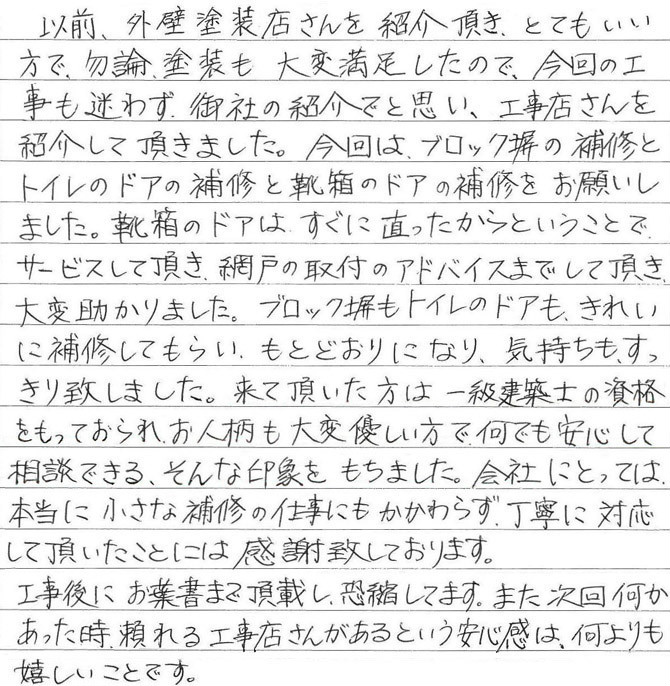 以前、外壁塗装店さんを紹介頂き、とてもいい
方で、勿論、塗装も大変満足したので、今回の工
事も迷わず、御社の紹介でと思い、工事店さんを
紹介して頂きました。今回は、ブロック塀の補修と
トイレのドアの補修と靴箱のドアの補修をお願いし
ました。靴箱のドアは、すぐに直ったからということで、
サービスして頂き、網戸の取付のアドバイスまでして頂き、
大変助かりました。ブロック塀もトイレのドアも、きれい
に補修してもらい、もとどおりになり、気持ちも、すっ
きり致しました。来て頂いた方は一級建築士の資格
をもっておられ、お人柄も大変優しい方で、何でも安心して
相談できる、そんな印象をもちました。会社にとっては、
本当に小さな補修の仕事にもかかわらず、丁寧に対応
して頂いたことには感謝致しております。
工事後にお葉書まで頂載し、恐縮してます。また次回何か
あった時、頼れる工事店さんがあるという安心感は、何よりも
嬉しいことです。